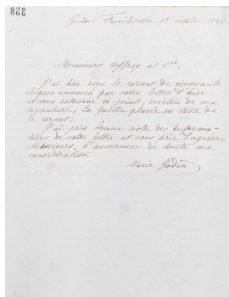 866
Guise-Familistère, 13 octobre 18
Messieurs Offroy et Cie,
J'ai bien reçu le carnet de cinquante
chèques annoncé par votre lettre d'hier
et vous retourne ci-joint, revêtu de ma
signature, la feuille placée en tête de
ce carnet.
J'ai pris bonne note des informa-
tions de votre lettre et vous prie d'agréer,
Messieurs, l'assurance de toute ma
considération
Marie Godin